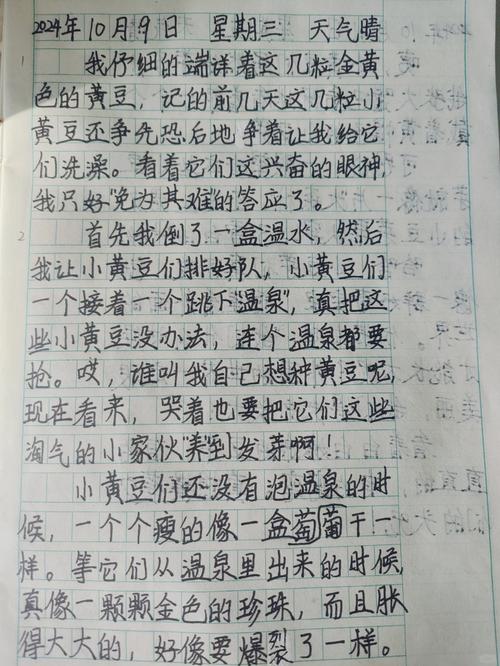 2024年10月9日 星期三 天气晴
我仔细的端详着这几粒金黄
色的黄豆，记的前几天这几粒小
黄豆还争先恐后地争着让我给它
们洗澡。看着它们这兴奋的眼神，
我只好"免为其难"的答应了。
首先我倒了一盒温水，然后
我让小黄豆们排好队，小黄豆们
一个接着一个跳下温泉"，真把这
些小黄豆没办法，连个温泉都要
抢。哎，谁叫我自己想种黄豆呢，
现在看来，哭着也要把它们这些
淘气的小家伙"养"到发芽啊！
小黄豆们还没有泡温泉的时
候，一个个瘦的像一盒葡萄干一
样。等它们从温泉里出来的时候，
真像一颗颗金色的珍珠，而且胀
得大大的，好像要爆裂了一样。